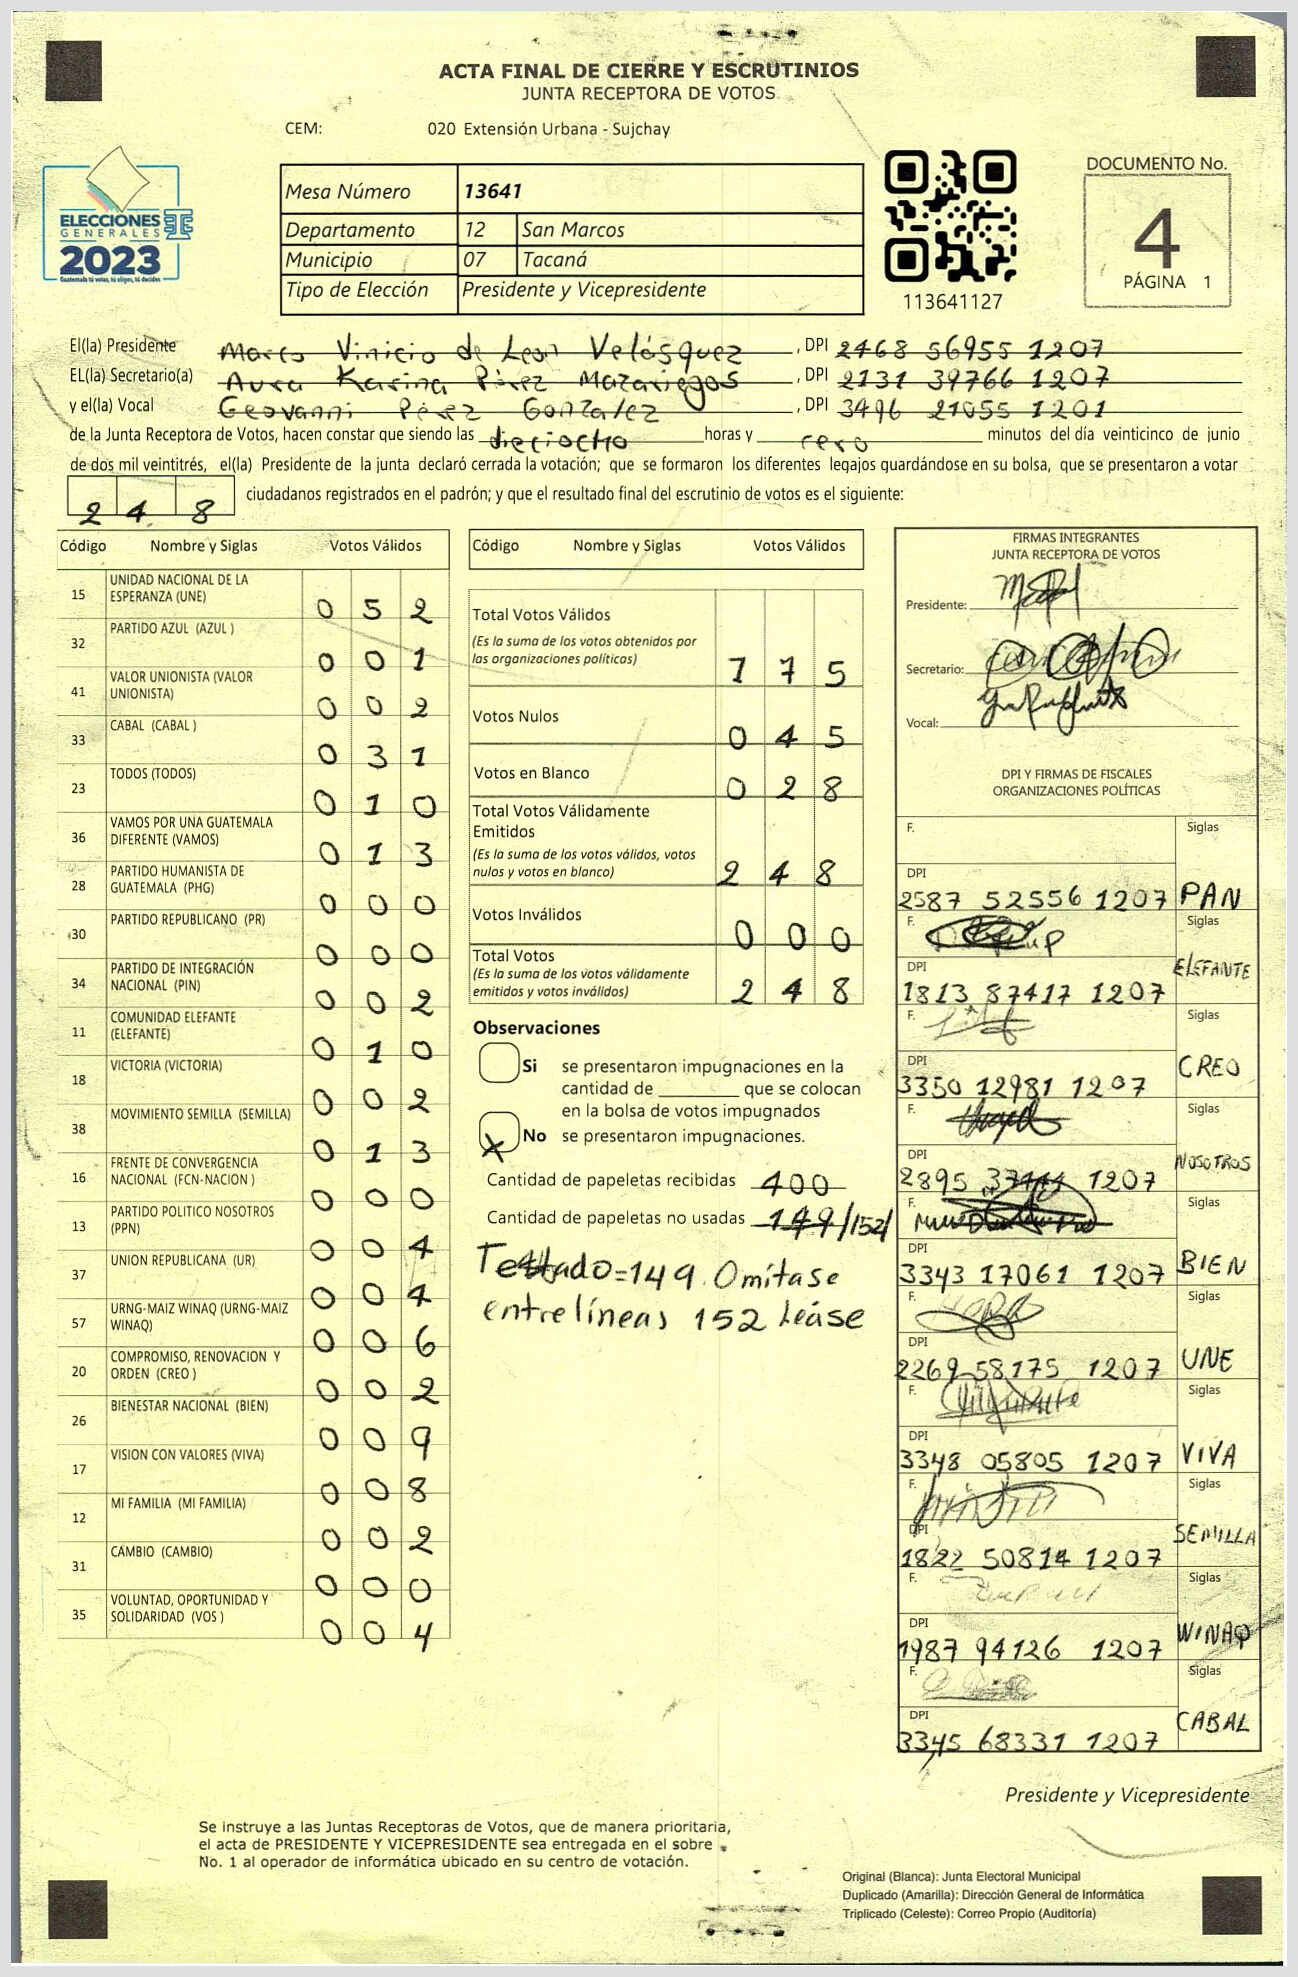 ACTA FINAL DE CIERRE Y ESCRUTINIOS
JUNTA RECEPTORA DE VOTOS
CEM: 020 Extensión Urbana - Sujchay
ELECCIONES
GENERALES
2023
Guatemala tú votas, tú eliges, tú decides
Mesa Número 13641
Departamento 12 San Marcos
Municipio 07 Tacaná
Tipo de Elección Presidente y Vicepresidente
113641127
DOCUMENTO No.
4
PÁGINA 1
El(la) Presidente Marco Vinicio de Leon Velásquez , DPI 2468 56955 1207
EL(la) Secretario(a) Aura Karina Pérez Mazariegos , DPI 2131 39766 1207
y el(la) Vocal Geovanni Pérez Gonzalez , DPI 3496 21055 1201
de la Junta Receptora de Votos, hacen constar que siendo las dieciocho horas y cero minutos del día veinticinco de junio
de dos mil veintitrés, el(la) Presidente de la junta declaró cerrada la votación; que se formaron los diferentes legajos guardándose en su bolsa, que se presentaron a votar
248 ciudadanos registrados en el padrón; y que el resultado final del escrutinio de votos es el siguiente:
Código Nombre y Siglas Votos Válidos
15 UNIDAD NACIONAL DE LA ESPERANZA (UNE) 052
32 PARTIDO AZUL (AZUL ) 001
41 VALOR UNIONISTA (VALOR UNIONISTA) 002
33 CABAL (CABAL ) 031
23 TODOS (TODOS) 010
36 VAMOS POR UNA GUATEMALA DIFERENTE (VAMOS) 013
28 PARTIDO HUMANISTA DE GUATEMALA (PHG) 000
30 PARTIDO REPUBLICANO (PR) 000
34 PARTIDO DE INTEGRACIÓN NACIONAL (PIN) 002
11 COMUNIDAD ELEFANTE (ELEFANTE) 010
18 VICTORIA (VICTORIA) 002
38 MOVIMIENTO SEMILLA (SEMILLA) 013
16 FRENTE DE CONVERGENCIA NACIONAL (FCN-NACION ) 000
13 PARTIDO POLITICO NOSOTROS (PPN) 004
37 UNION REPUBLICANA (UR) 004
57 URNG-MAIZ WINAQ (URNG-MAIZ WINAQ) 006
20 COMPROMISO, RENOVACION Y ORDEN (CREO ) 002
26 BIENESTAR NACIONAL (BIEN) 009
17 VISION CON VALORES (VIVA) 008
12 MI FAMILIA (MI FAMILIA) 002
31 CAMBIO (CAMBIO) 000
35 VOLUNTAD, OPORTUNIDAD Y SOLIDARIDAD (VOS ) 004
Código Nombre y Siglas Votos Válidos
Total Votos Válidos
(Es la suma de los votos obtenidos por
las organizaciones políticas) 175
Votos Nulos 045
Votos en Blanco 028
Total Votos Válidamente
Emitidos
(Es la suma de los votos válidos, votos
nulos y votos en blanco) 248
Votos Inválidos 000
Total Votos
(Es la suma de los votos válidamente
emitidos y votos inválidos) 248
Observaciones
Si se presentaron impugnaciones en la
cantidad de ________ que se colocan
en la bolsa de votos impugnados
X No se presentaron impugnaciones.
Cantidad de papeletas recibidas 400
Cantidad de papeletas no usadas 149/152/
Testado=149. Omítase
entrelíneas 152 Leáse
FIRMAS INTEGRANTES
JUNTA RECEPTORA DE VOTOS
Presidente:
Secretario:
Vocal:
DPI Y FIRMAS DE FISCALES
ORGANIZACIONES POLÍTICAS
F. Siglas
DPI
2587 52556 1207 PAN
F. Siglas
DPI
1813 87417 1207 ELEFANTE
F. Siglas
DPI
3350 12981 1207 CREO
F. Siglas
DPI
2895 1207 NOSOTROS
F. Siglas
DPI
3343 17061 1207 BIEN
F. Siglas
DPI
2269 58175 1207 UNE
F. Siglas
DPI
3348 05805 1207 VIVA
F. Siglas
DPI
1822 50814 1207 SEMILLA
F. Siglas
DPI
1987 94126 1207 WINAQ
F. Siglas
DPI
3345 68331 1207 CABAL
Presidente y Vicepresidente
Se instruye a las Juntas Receptoras de Votos, que de manera prioritaria,
el acta de PRESIDENTE Y VICEPRESIDENTE sea entregada en el sobre
No. 1 al operador de informática ubicado en su centro de votación.
Original (Blanca): Junta Electoral Municipal
Duplicado (Amarilla): Dirección General de Informática
Triplicado (Celeste): Correo Propio (Auditoría)